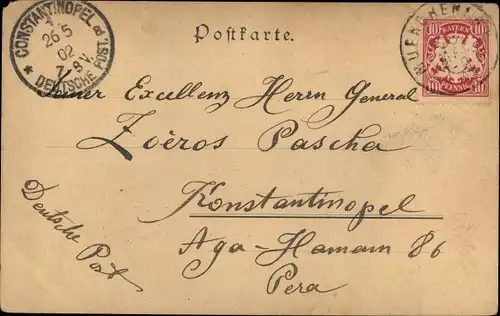 CONSTANTINOPEL ad. POST.
26 5
02
7-8 V.
* DEUTSCHE
Postkarte.
MUENCHEN
BAYERN
10 PFENNIG 10
Seiner Excellenz Herrn General
Zoëros Pascha
Konstantinopel
Aga-Hamam 86
Pera
Deutsche
Post